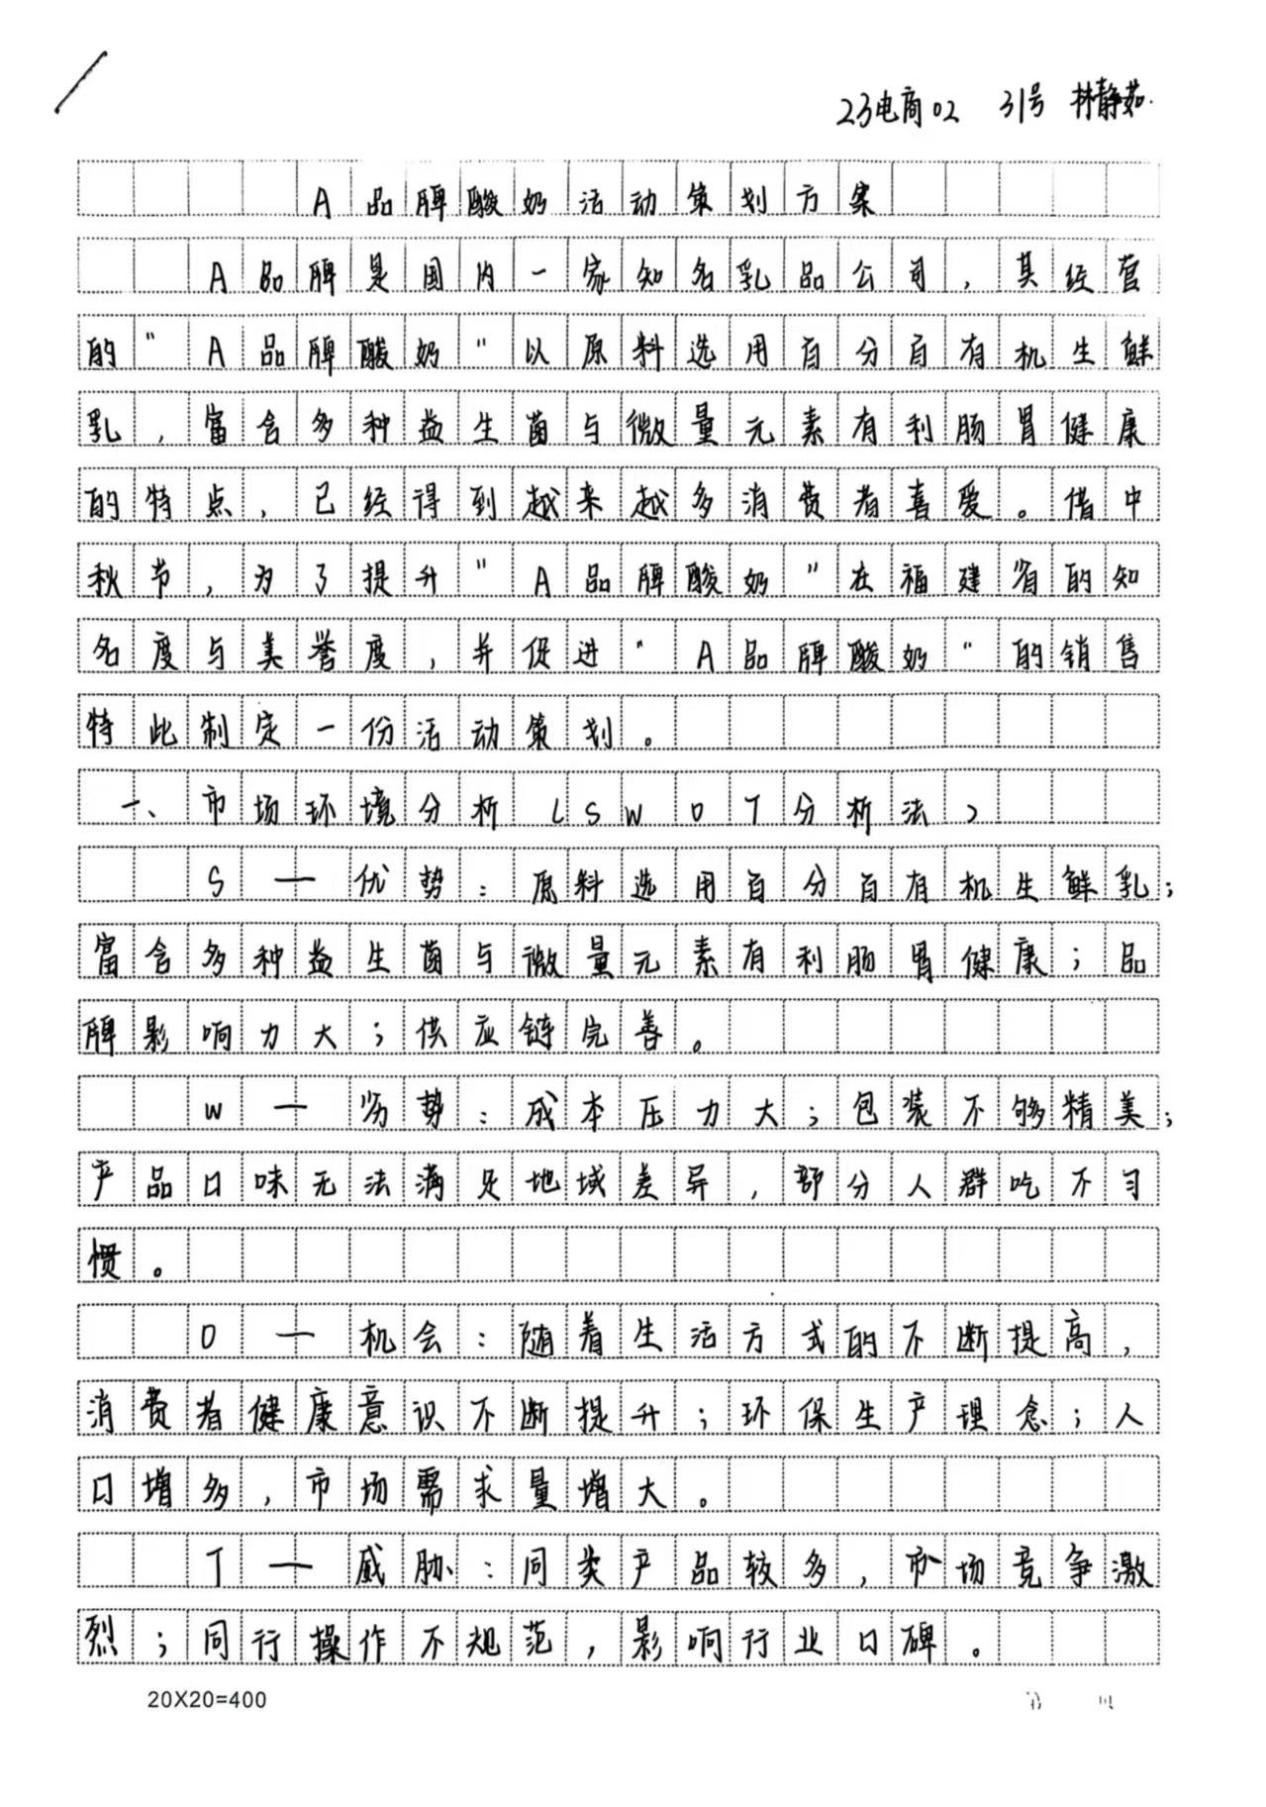 23电商02 31号 林静茹
A品牌酸奶活动策划方案
A品牌是国内一家知名乳品公司，其经营
的"A品牌酸奶"以原料选用百分百有机生鲜
乳，富含多种益生菌与微量元素有利肠胃健康
的特点，已经得到越来越多消费者喜爱。借中
秋节，为了提升"A品牌酸奶"在福建省的知
名度与美誉度，并促进"A品牌酸奶"的销售
特此制定一份活动策划。
一、市场环境分析（SWOT分析法）
S—优势：原料选用百分百有机生鲜乳；
富含多种益生菌与微量元素有利肠胃健康；品
牌影响力大；供应链完善。
W—劣势：成本压力大；包装不够精美；
产品口味无法满足地域差异，部分人群吃不习
惯。
O—机会：随着生活方式的不断提高，
消费者健康意识不断提升；环保生产理念；人
口增多，市场需求量增大。
T—威胁：同类产品较多，市场竞争激
烈；同行操作不规范，影响行业口碑。
20X20=400